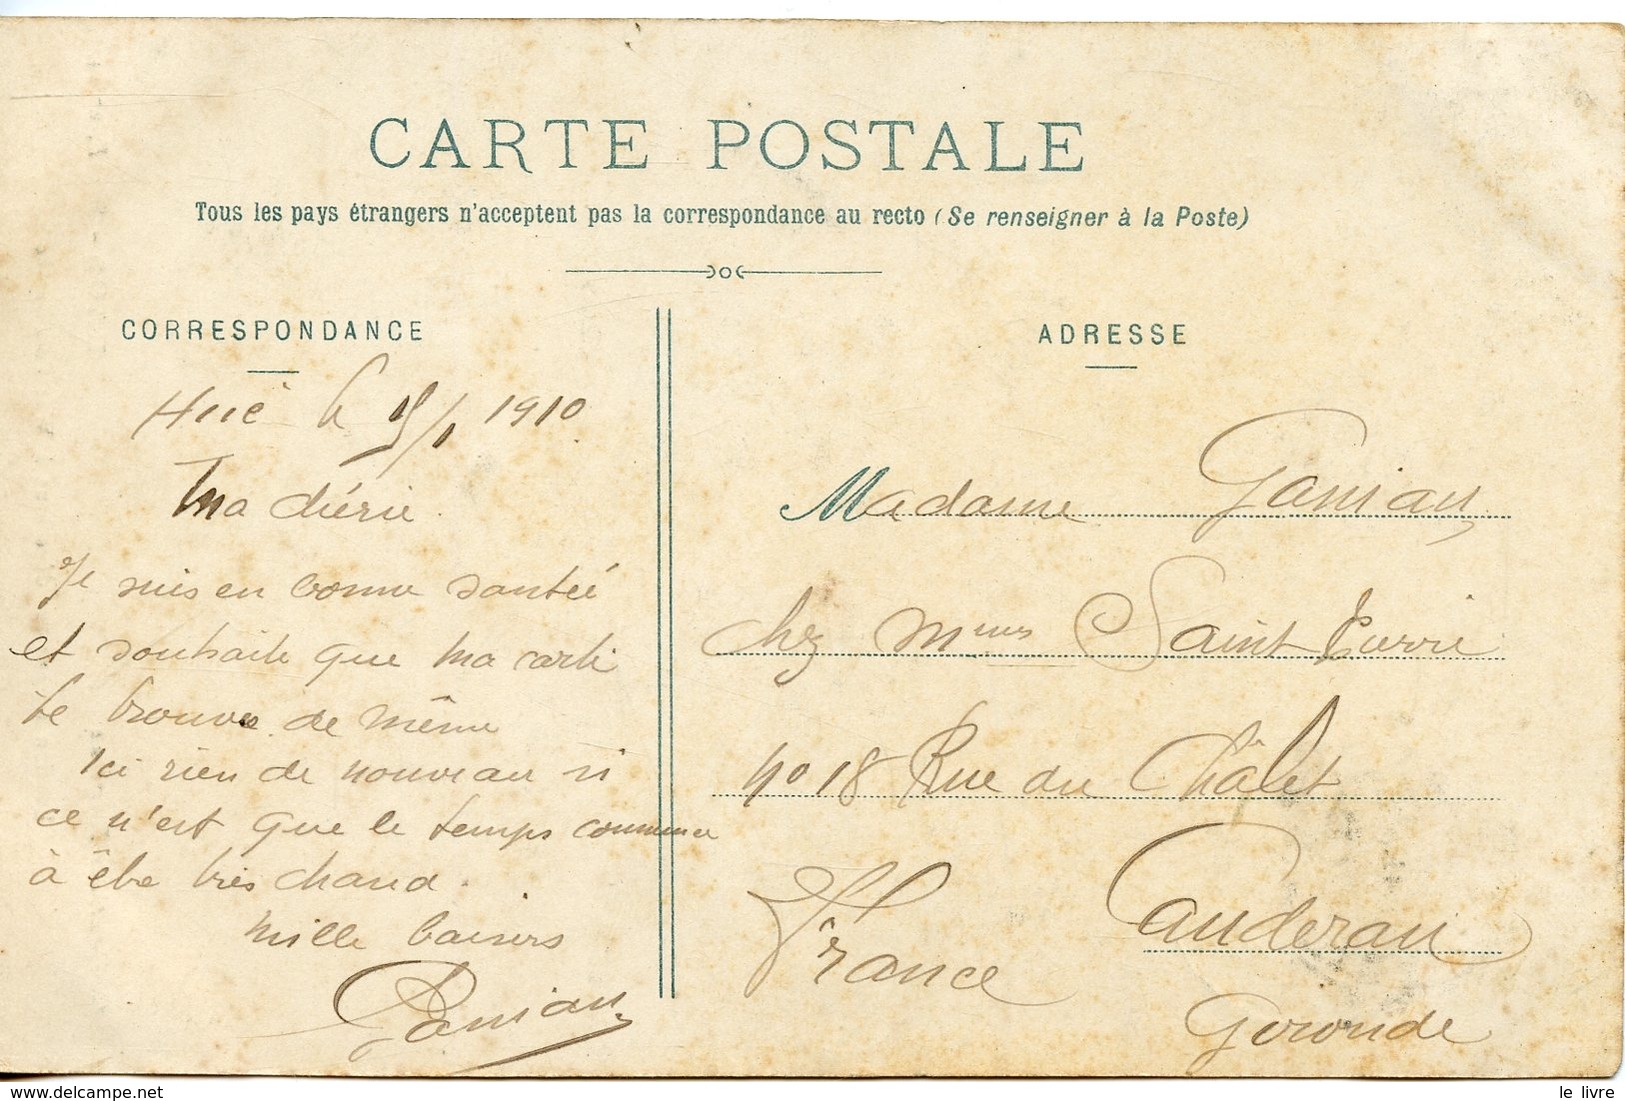 CARTE POSTALE
Tous les pays étrangers n'acceptent pas la correspondance au recto (Se renseigner à la Poste)
CORRESPONDANCE
Hué le 1910
Ma chérie
Je suis en bonne santée
et souhaite que ma carte
te trouve de même
Ici rien de nouveau si
ce n'est que le temps commence
à être très chaud.
Mille baisers
Ganian
ADRESSE
Madame Ganian
chez Mmes Saint Pierre
No 18 Rue du Châlet
Cauderan
France
Gironde
le livre